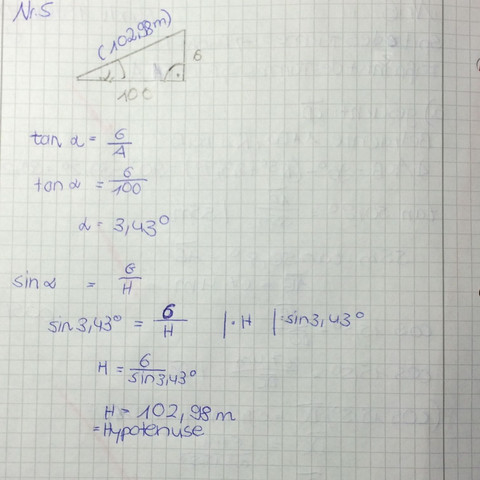 Nr.5
(102,98m)
6
α
100
tan α = G/A
tan α = 6/100
α = 3,43°
sin α = G/H
sin 3,43° = 6/H |·H |:sin 3,43°
H = 6/sin 3,43°
H = 102,98 m
= Hypotenuse